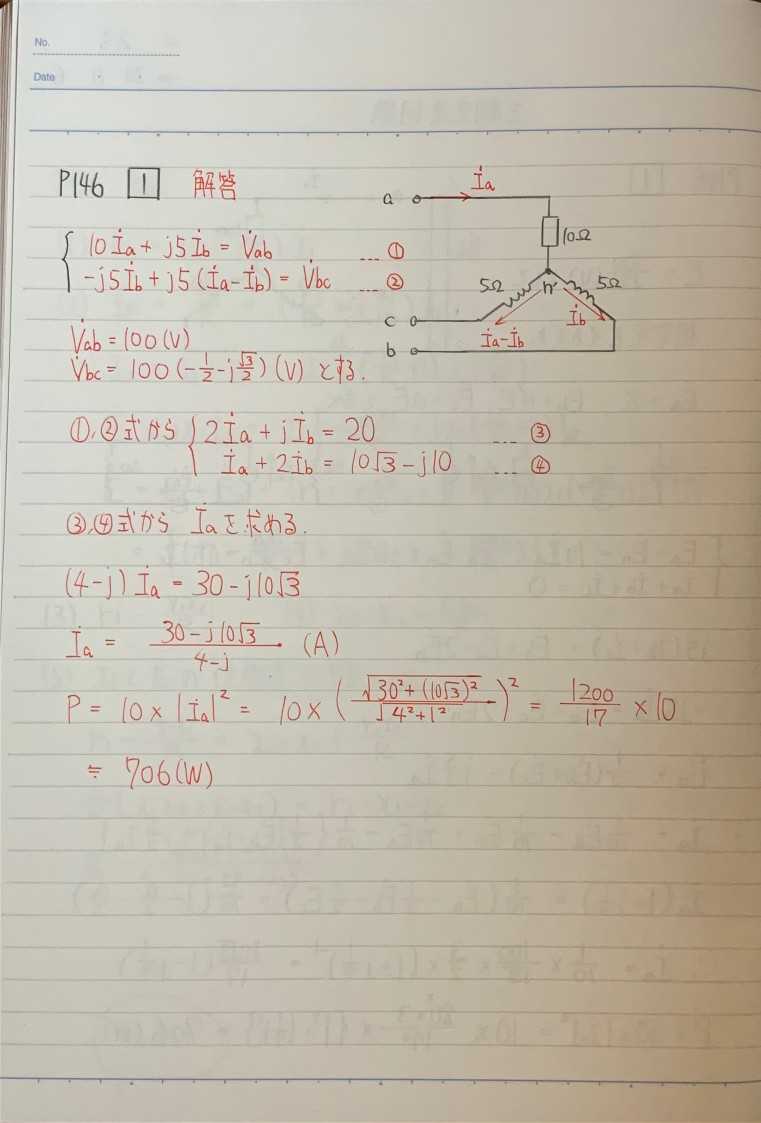 No.
Date
P146 1 解答
a İa
10Ω
10İa + j5İb = V̇ab ... ①
-j5İb + j5(İa-İb) = V̇bc ... ②
5Ω n' 5Ω
c İa-İb İb
b
V̇ab = 100(V)
V̇bc = 100(-1/2 - j√3/2)(V) とする.
①,②式から { 2İa + jİb = 20 ... ③
İa + 2İb = 10√3 - j10 ... ④
③,④式から İaを求める.
(4-j)İa = 30-j10√3
İa = (30-j10√3)/(4-j) (A)
P = 10×|İa|² = 10×(√(30²+(10√3)²)/√(4²+1²))² = 1200/17 ×10
≒ 706(W)